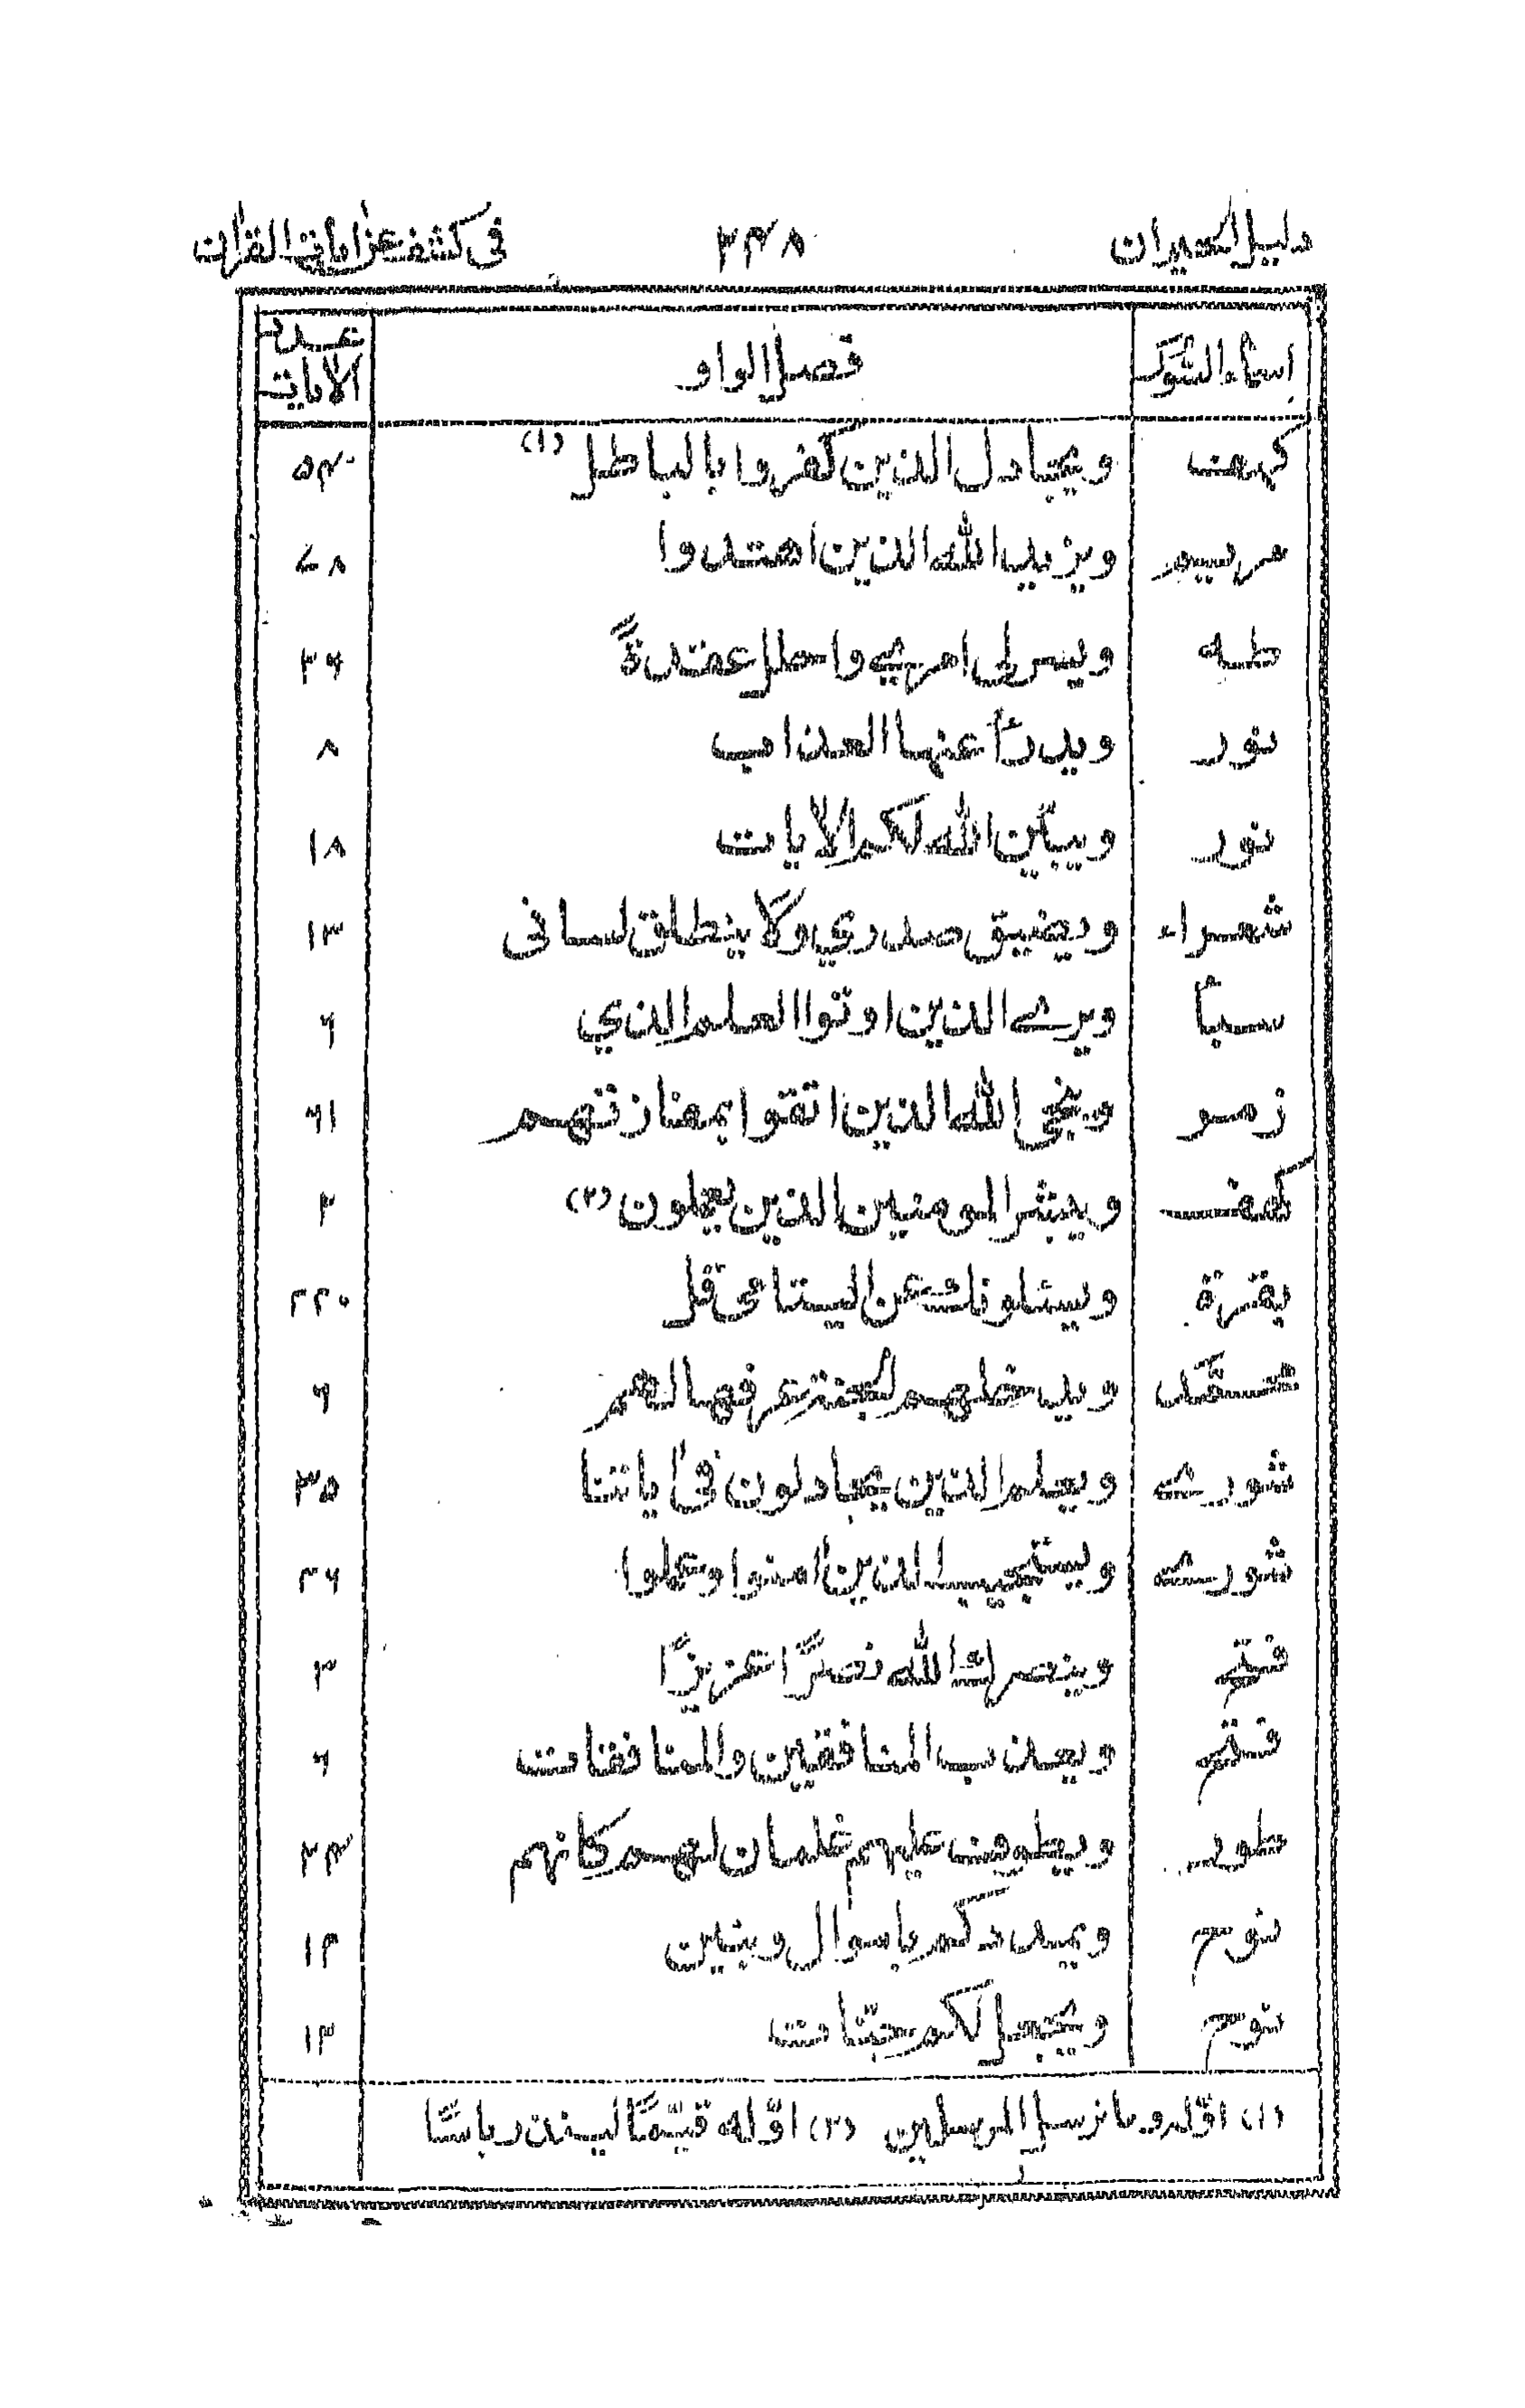 دليل الحيران ٣٤٨ فى كشف عن اٰيات القراٰن
اسماء السُّوَر فصل الواو عدد الاٰيات
كهف ويجادل الذين كفروا بالباطل (١) ٥٤
مريم ويزيد الله الذين اهتدوا ٧٨
طه ويسرلى امرے واحلل عقدةً ٢٦
نور ويدرؤا عنها العذاب ٨
نور ويبيّن الله لكم الاٰيات ١٨
شعراء ويضيق صدري ولا ينطلق لسانى ١٣
سبأ ويرے الذين اوتوا العلم الذي ٦
زمر وينجى الله الذين اتقوا بمفازتهم ٦١
كهف ويبشر المومنين الذين يعملون (٢) ٢
بقرة ويسئلونك عن اليتامى قل ٢٢٠
محمّد ويدخلهم الجنة عرفها لهم ٦
شورے ويعلم الذين يجادلون فى اٰياتنا ٣٥
شورے ويستجيب الذين اٰمنوا وعملوا ٢٦
فتح وينصرك الله نصرًا عزيزًا ٣
فتح ويعذب المنافقين والمنافقات ٦
طور ويطوف عليهم غلمان لهم كانهم ٢٤
نوح ويمددكم باموال وبنين ١٢
نوح ويجعل لكم جنّات ١٢
(١) اوّله وما نرسل المرسلين (٢) اوّله قيّمًا لينذر باسًا